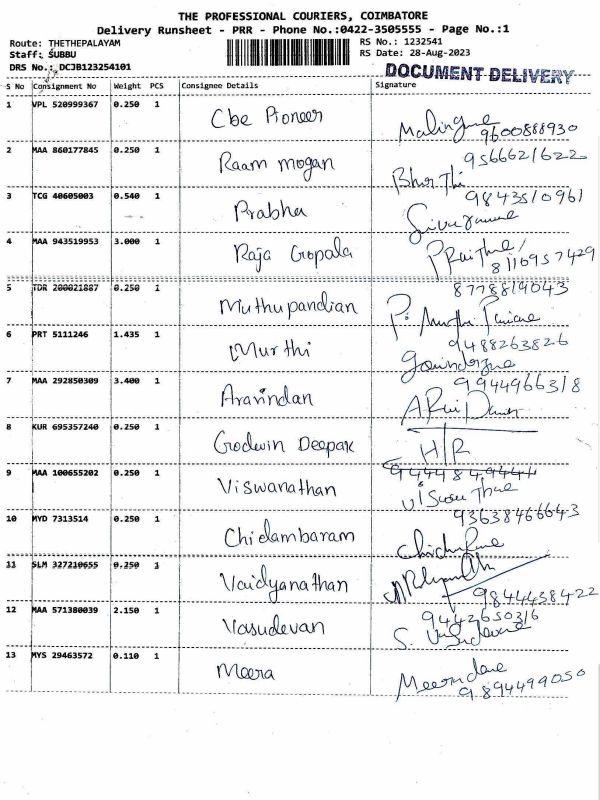 THE PROFESSIONAL COURIERS, COIMBATORE
Delivery Runsheet - PRR - Phone No.:0422-3505555 - Page No.:1
Route: THETHEPALAYAM RS No.: 1232541
Staff: SUBBU RS Date: 28-Aug-2023
DRS No.: DCJB123254101 DOCUMENT DELIVERY
S No Consignment No Weight PCS Consignee Details Signature
1 VPL 520999367 0.250 1 Cbe Pioneer
9600888930
2 MAA 860177845 0.250 1 Raam mogan 9566621622
3 TCG 40605003 0.540 1 Prabha 9843510961
4 MAA 943519953 3.000 1 Raja Gopala
8110957429
5 TDR 200021887 0.250 1 Muthupandian 8778819043
6 PRT 5111246 1.435 1 Murthi 9488263826
7 MAA 292850309 3.400 1 Aravindan 9944966318
8 KUR 695357240 0.250 1 Godwin Deepak H/R
9 MAA 100655202 0.250 1 Viswanathan 9444849444
10 MYD 7313514 0.250 1 Chidambaram 93638466643
11 SLM 327210655 0.250 1 Vaidyanathan
9844438422
12 MAA 571380039 2.150 1 Vasudevan 9442650316
13 MYS 29463572 0.110 1 Meera
9894499050